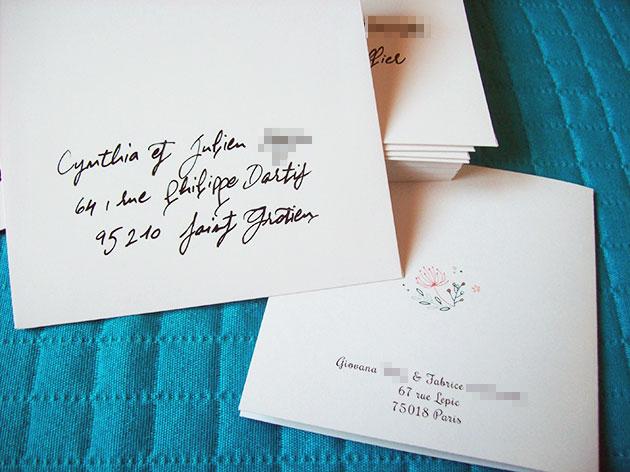 Cynthia et Julien
64, rue Philippe Dartis
95210 Saint Gratien
Giovana & Fabrice
67 rue Lepic
75018 Paris